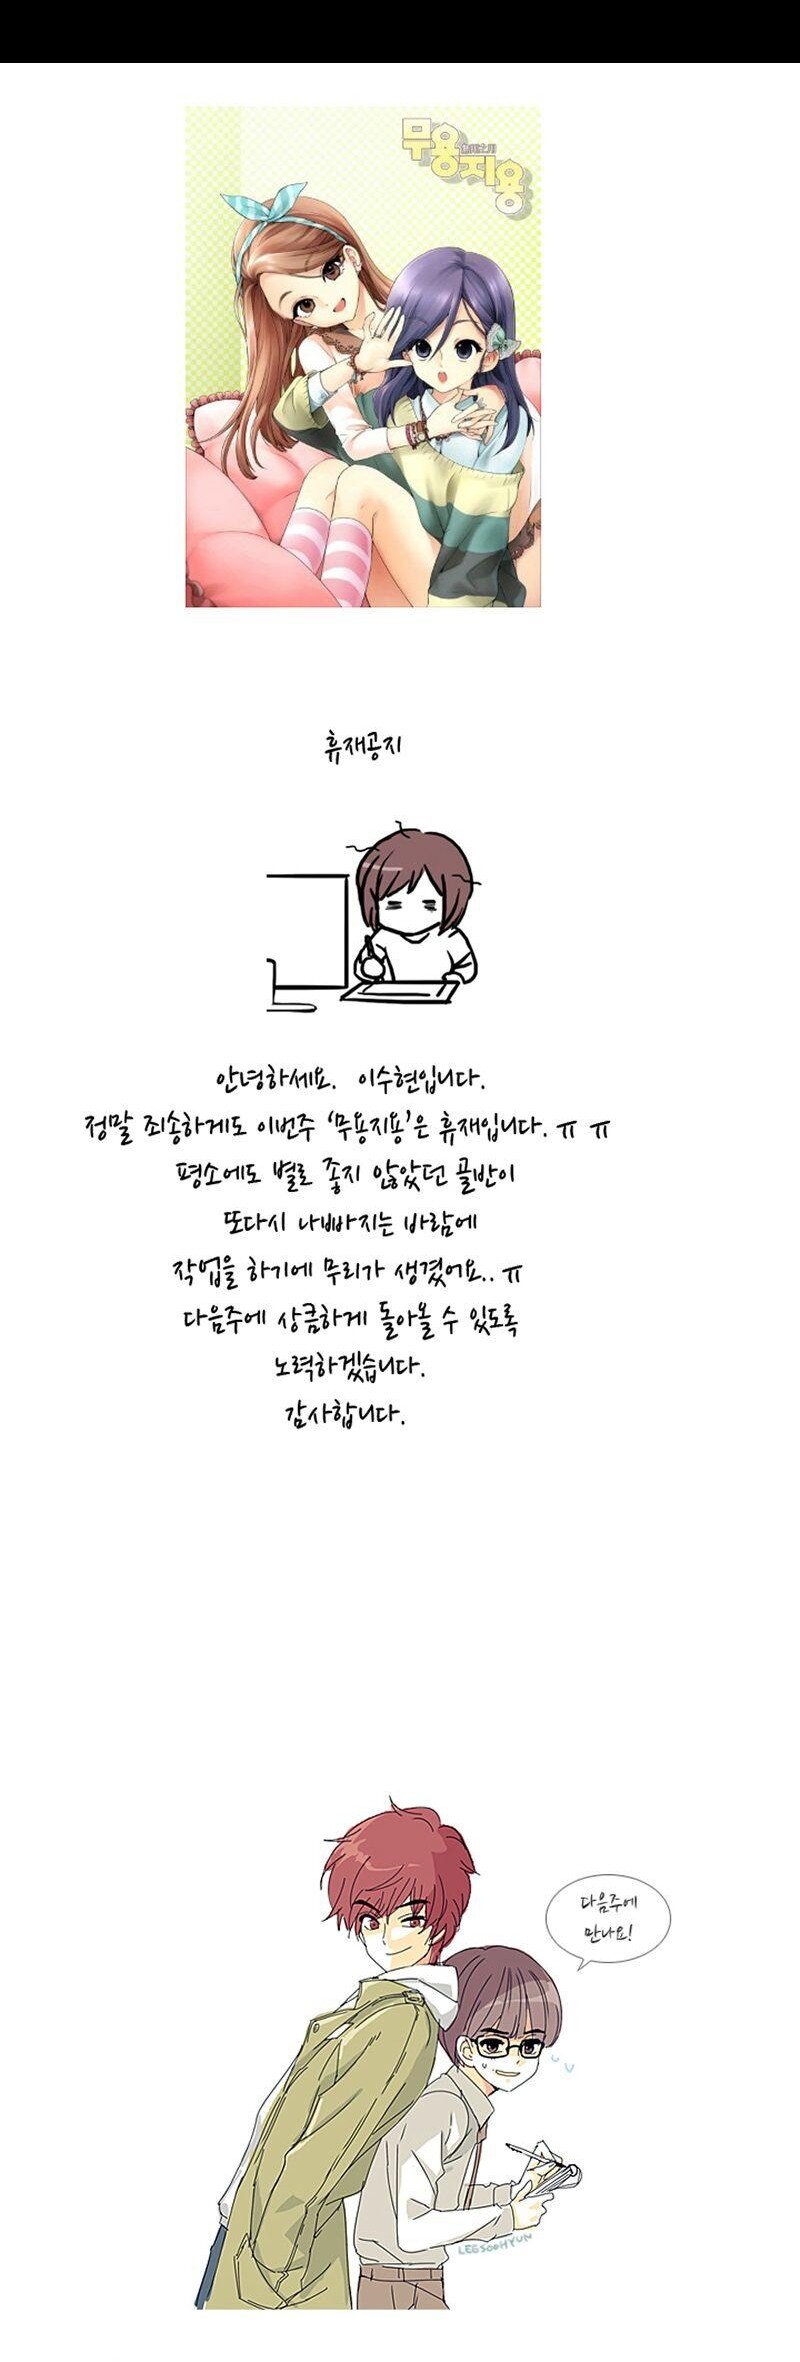 무용지용
無用之用
휴재공지
안녕하세요. 이수현입니다.
정말 죄송하게도 이번주 '무용지용'은 휴재입니다. ㅠ ㅠ
평소에도 별로 좋지 않았던 골반이
또다시 나빠지는 바람에
작업을 하기에 무리가 생겼어요.. ㅠ
다음주에 상큼하게 돌아올 수 있도록
노력하겠습니다.
감사합니다.
다음주에
만나요!
LEESOOHYUN